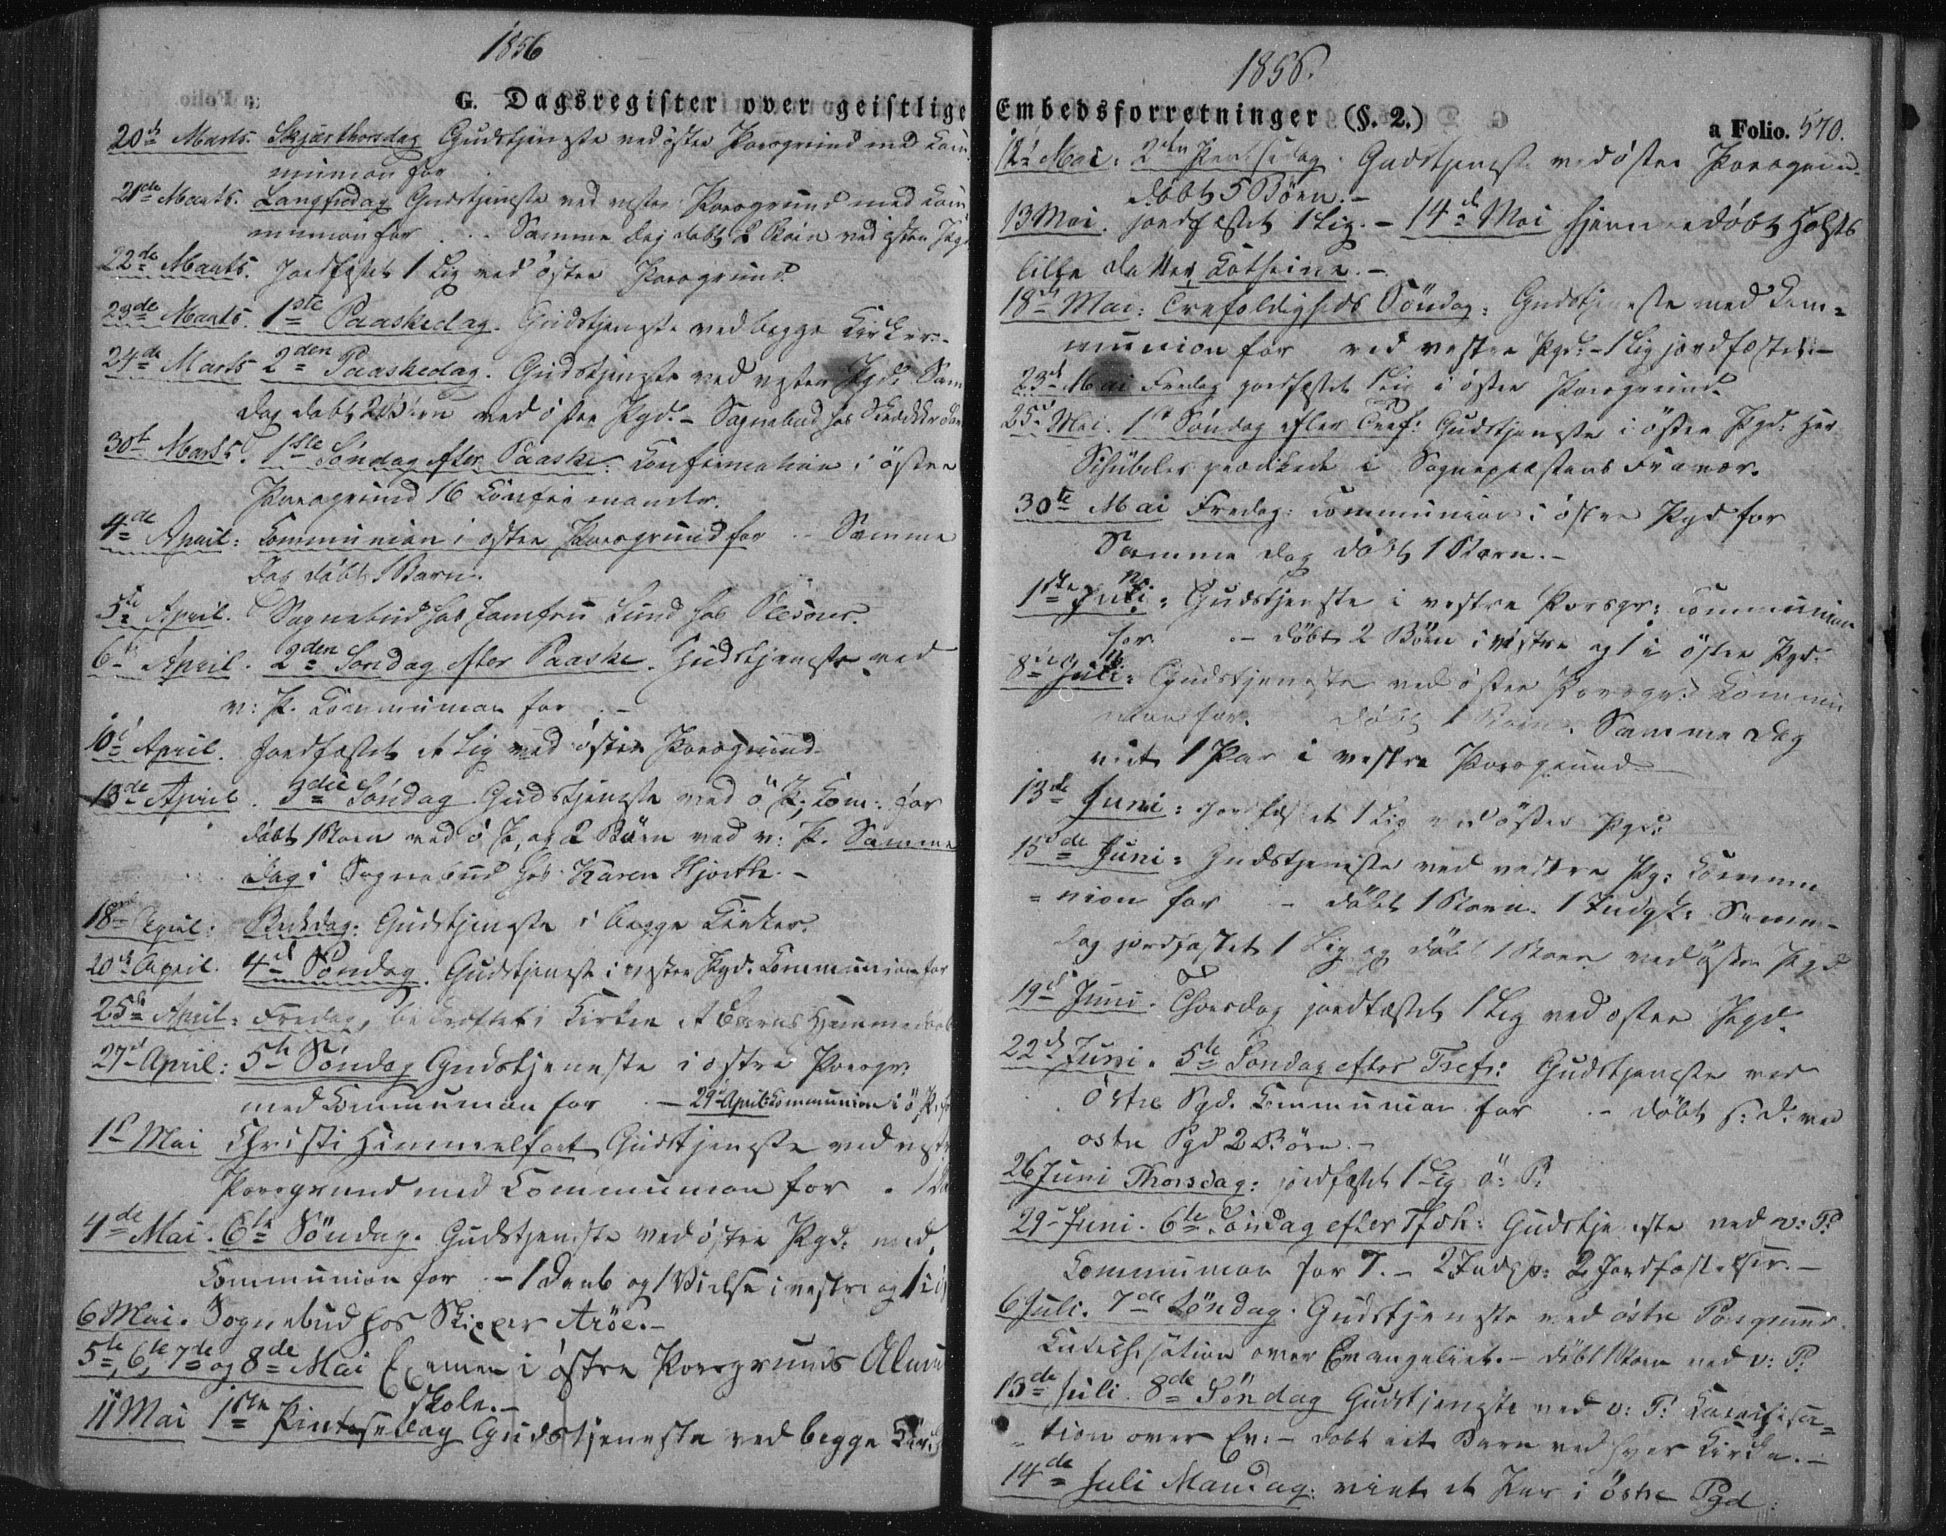 1856
G. Dagsregister over geistlige
20de Marts. Skjærthorsdag Gudstjeneste ved østre Porsgrund med Com-
munion for
21de Marts. Langfredag Gudstjeneste ved vestre Porsgrund med Com-
munion for . . - Samme Dag døbt 2 Børn ved østre Pgd
22de Marts. Jordfæstet 1 Lig ved østre Porsgrund.
23de Marts. 1ste Paaskedag. Gudstjeneste ved begge Kirker. -
24de Marts 2den Paaskedag. Gudstjeneste ved vestre Pgd. Sam
Dag døbt 2 Børn ved østre Pgd. - Sognebud hos
30te Marts. 1ste Søndag efter Paaske. Confirmation i østre
Porsgrund 16 Confirmander.
4de April: Communion i østre Porsgrund for .. Samme
Dag døbt 1 Barn.
5te April. Sognebud hos Jomfru Lund hos
6te April. 2den Søndag efter Paaske. Gudstjeneste ved
v: P. Communion for . -
10de April. Jordfæstet et Lig ved østre Porsgrund
13de April. 3die Søndag Gudstjeneste ved ø P; Com: for
døbt 1 Barn ved ø P, og 2 Børn ved v: P. Samme
Dag i Sognebud hos Karen Hjorth. -
18de April: Bededag: Gudstjeneste i begge Kirker.
20de April. 4de Søndag. Gudstjeneste i vestre Pgd. Communion for
25de April: Fredag, bekræftet i Kirken et Barns Hjemmedaab
27de April: 5te Søndag Gudstjeneste i østre Porsgr:
med Communion for - 29de April Communion i ø P. for
1ste Mai Christi Himmelfart Gudstjeneste ved vestre
Porsgrund med Communion for . 1
4de Mai. 6te Søndag. Gudstjeneste ved østre Pgd. med
Communion for - 1 Daab og 1 Vielse i vestre og 1 i ø
6 Mai. Sognebud hos Skipper Arøe. -
5te, 6te 7de og 8de Mai Examen i østre Porsgrunds Almu
skole. -
11 Mai 1ste Pintsedag Gudstjeneste ved begge Kirk
1856.
Embedsforretninger (§. 2.)
a Folio. 570.
12te Mai: 2den Pintsedag. Gudstjeneste ved østre Porsgrund.
døbt 5 Børn. -
13 Mai. jordfæstet 1 Lig. - 14de Mai hjemmedøbt Holsts
lille Datter Cathrine. -
18de Mai: Trefoldigheds Søndag: Gudstjeneste med Com=
munion for ved vestre Pgd: - 1 Lig jordfæstet -
23de Mai Fredag jordfæstet 1 Lig i østre Porsgrund.
25de Mai. 1ste Søndag efter Tref: Gudstjeneste i østre Pgd. Her
Schübeler prædikede i Sognepræstens Fravær.
30te Mai Fredag: Communion i østre Pgd for
Samme Dag døbt 1 Barn. -
1ste Juni: Gudstjeneste i vestre Porsgr: Communion
for - døbt 2 Børn i vestre og 1 i østre Pgd.
8de Juni: Gudstjeneste ved østre Porsgrd Commu
nion for. døbt 1 Barn. Samme Dag
viet 1 Par i vestre Porsgrund
13de Juni: jordfæstet 1 Lig ved østre Pgd:
15de Juni: Gudstjeneste ved vestre Pg: Commu
=nion for - døbt 1 Barn. 1 Indgk: Samme
Dag jordfæstet 1 Lig og døbt 1 Barn ved østre Pgd
19de Juni. Thorsdag jordfæstet 1 Lig ved østre Pgd.
22de Juni. 5te Søndag efter Tref: Gudstjeneste ved
Østre Pgd. Communion for . - døbt s: D: ved
østre Pgd 2 Børn. -
26 Juni Thorsdag: jordfæstet 1 Lig ø: P:
29de Juni. 6te Søndag efter Tfdh: Gudstjeneste ved v: P:
Communion for 7. - 2 Indgk: 2 Jordfæstelser. -
6 Juli. 7de Søndag. Gudstjeneste ved østre Porsgrund.
Catechisation over Evangeliet. - døbt 1 Barn ved v: P:
13de Juli. 8de Søndag Gudstjeneste ved v: P: Catechisa=
=tion over Ev: - døbt eet Barn ved hver Kirke. -
14de Juli Mandag: viet et Par i østre Pgd: